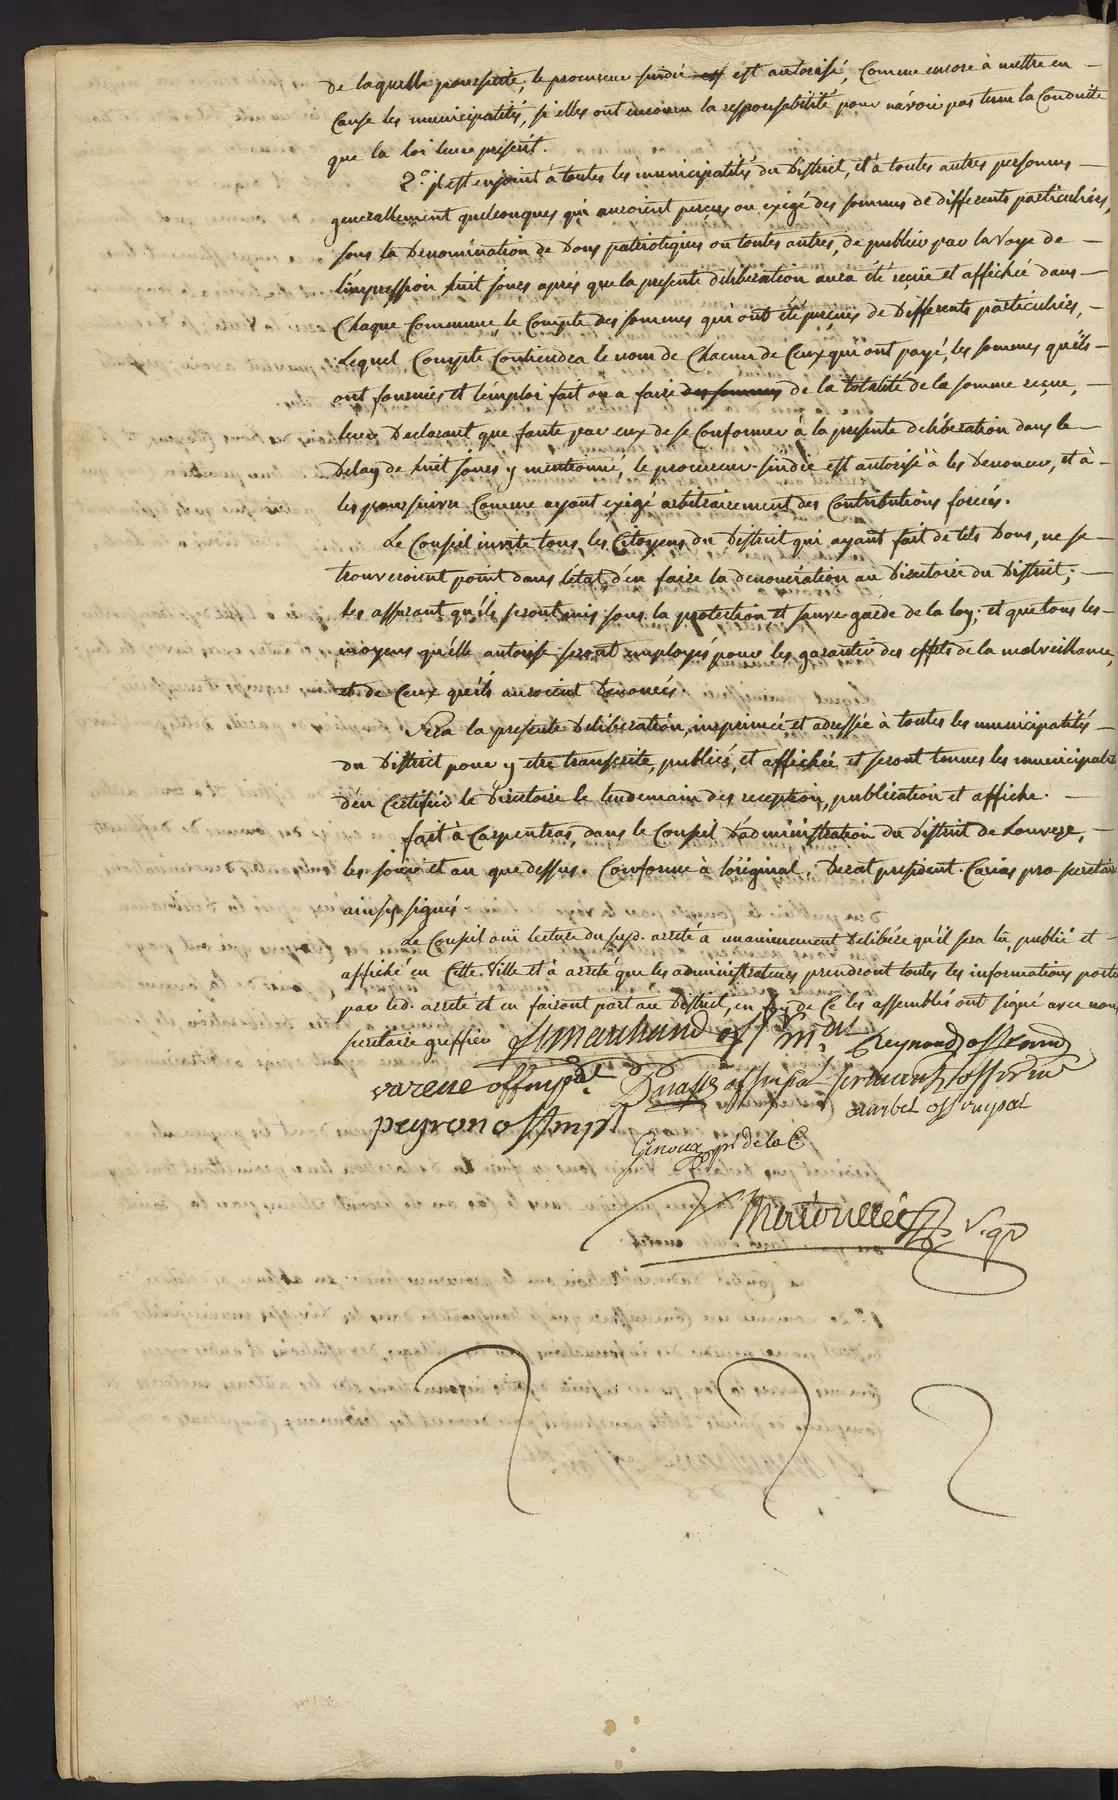 de laquelle poursuite, le procureur sindic est autorisé, Comme encore à mettre en
Cause les municipalités, si elles ont encouru la responsabilité pour n'avoir pas tenu la Conduite
que la loi leur présent.
2.° il est enjoint à toutes les municipalités du District, et à toutes autres personnes
generallement quelconques qui auroient perçus ou exigé des sommes de differents particuliers,
sous la Denomination de Dons patriotiques ou toutes autres, de publier par la Voye de
l'impression huit jours après que la presente deliberation aura été reçue et affichée dans
Chaque Commune, le Compte des sommes qui ont été perçues de Differents particuliers,
Lequel Compte Contiendra le nom de Chacun de Ceux qui ont payé, les sommes qu'ils
ont fournies et l'emploi fait ou a faire des sommes de la totalité de la somme reçue,
leur Declarant que faute par eux de se Conformer à la presente deliberation dans le
Delay de huit jours y mentionné, le procureur-sindic est autorisé à les Denoncer, et à
les poursuivre Comme ayant exigé arbitrairement des Contributions forcées.
Le Conseil invite tous les Citoyens du District qui ayant fait de tels Dons, ne se
trouveroient point dans l'état, d'en faire la denonciation au Directoire du District;
les assurant qu'ils seront mis sous la protection et sauve garde de la loy; et que tous les
moyens qu'elle autorise seront employés pour les garantir des effets de la malveillance,
et de Ceux qu'ils auroient Denoncés.
Sera la presente Deliberation, imprimée et adressée à toutes les municipalités
du District pour y etre transcrite, publiée, et affichée et seront tenues les municipalités
d'en Certifier le Directoire le lendemain des reception, publication et affiche.
fait à Carpentras, dans le Conseil D'administration du District de Louveze,
les jour et an que dessus. Conforme à l'original. Ducat president. Carias pro-secretaire
ainsy signés.
Le Conseil ouï lecture du susd. arreté a unanimement Delibéré qu'il sera lu, publié et
affiché en Cette Ville et a arreté que les administrateurs prendront toutes les informations portées
par led. arreté et en fairont part au District, en foy de Ce les assemblés ont signé avec nous
secretaire greffier Marchand off. m.al Reynaud off mp
varene off mpal off mpal off
peyron off mpl aubet off mupal
Giroux pr de la C.